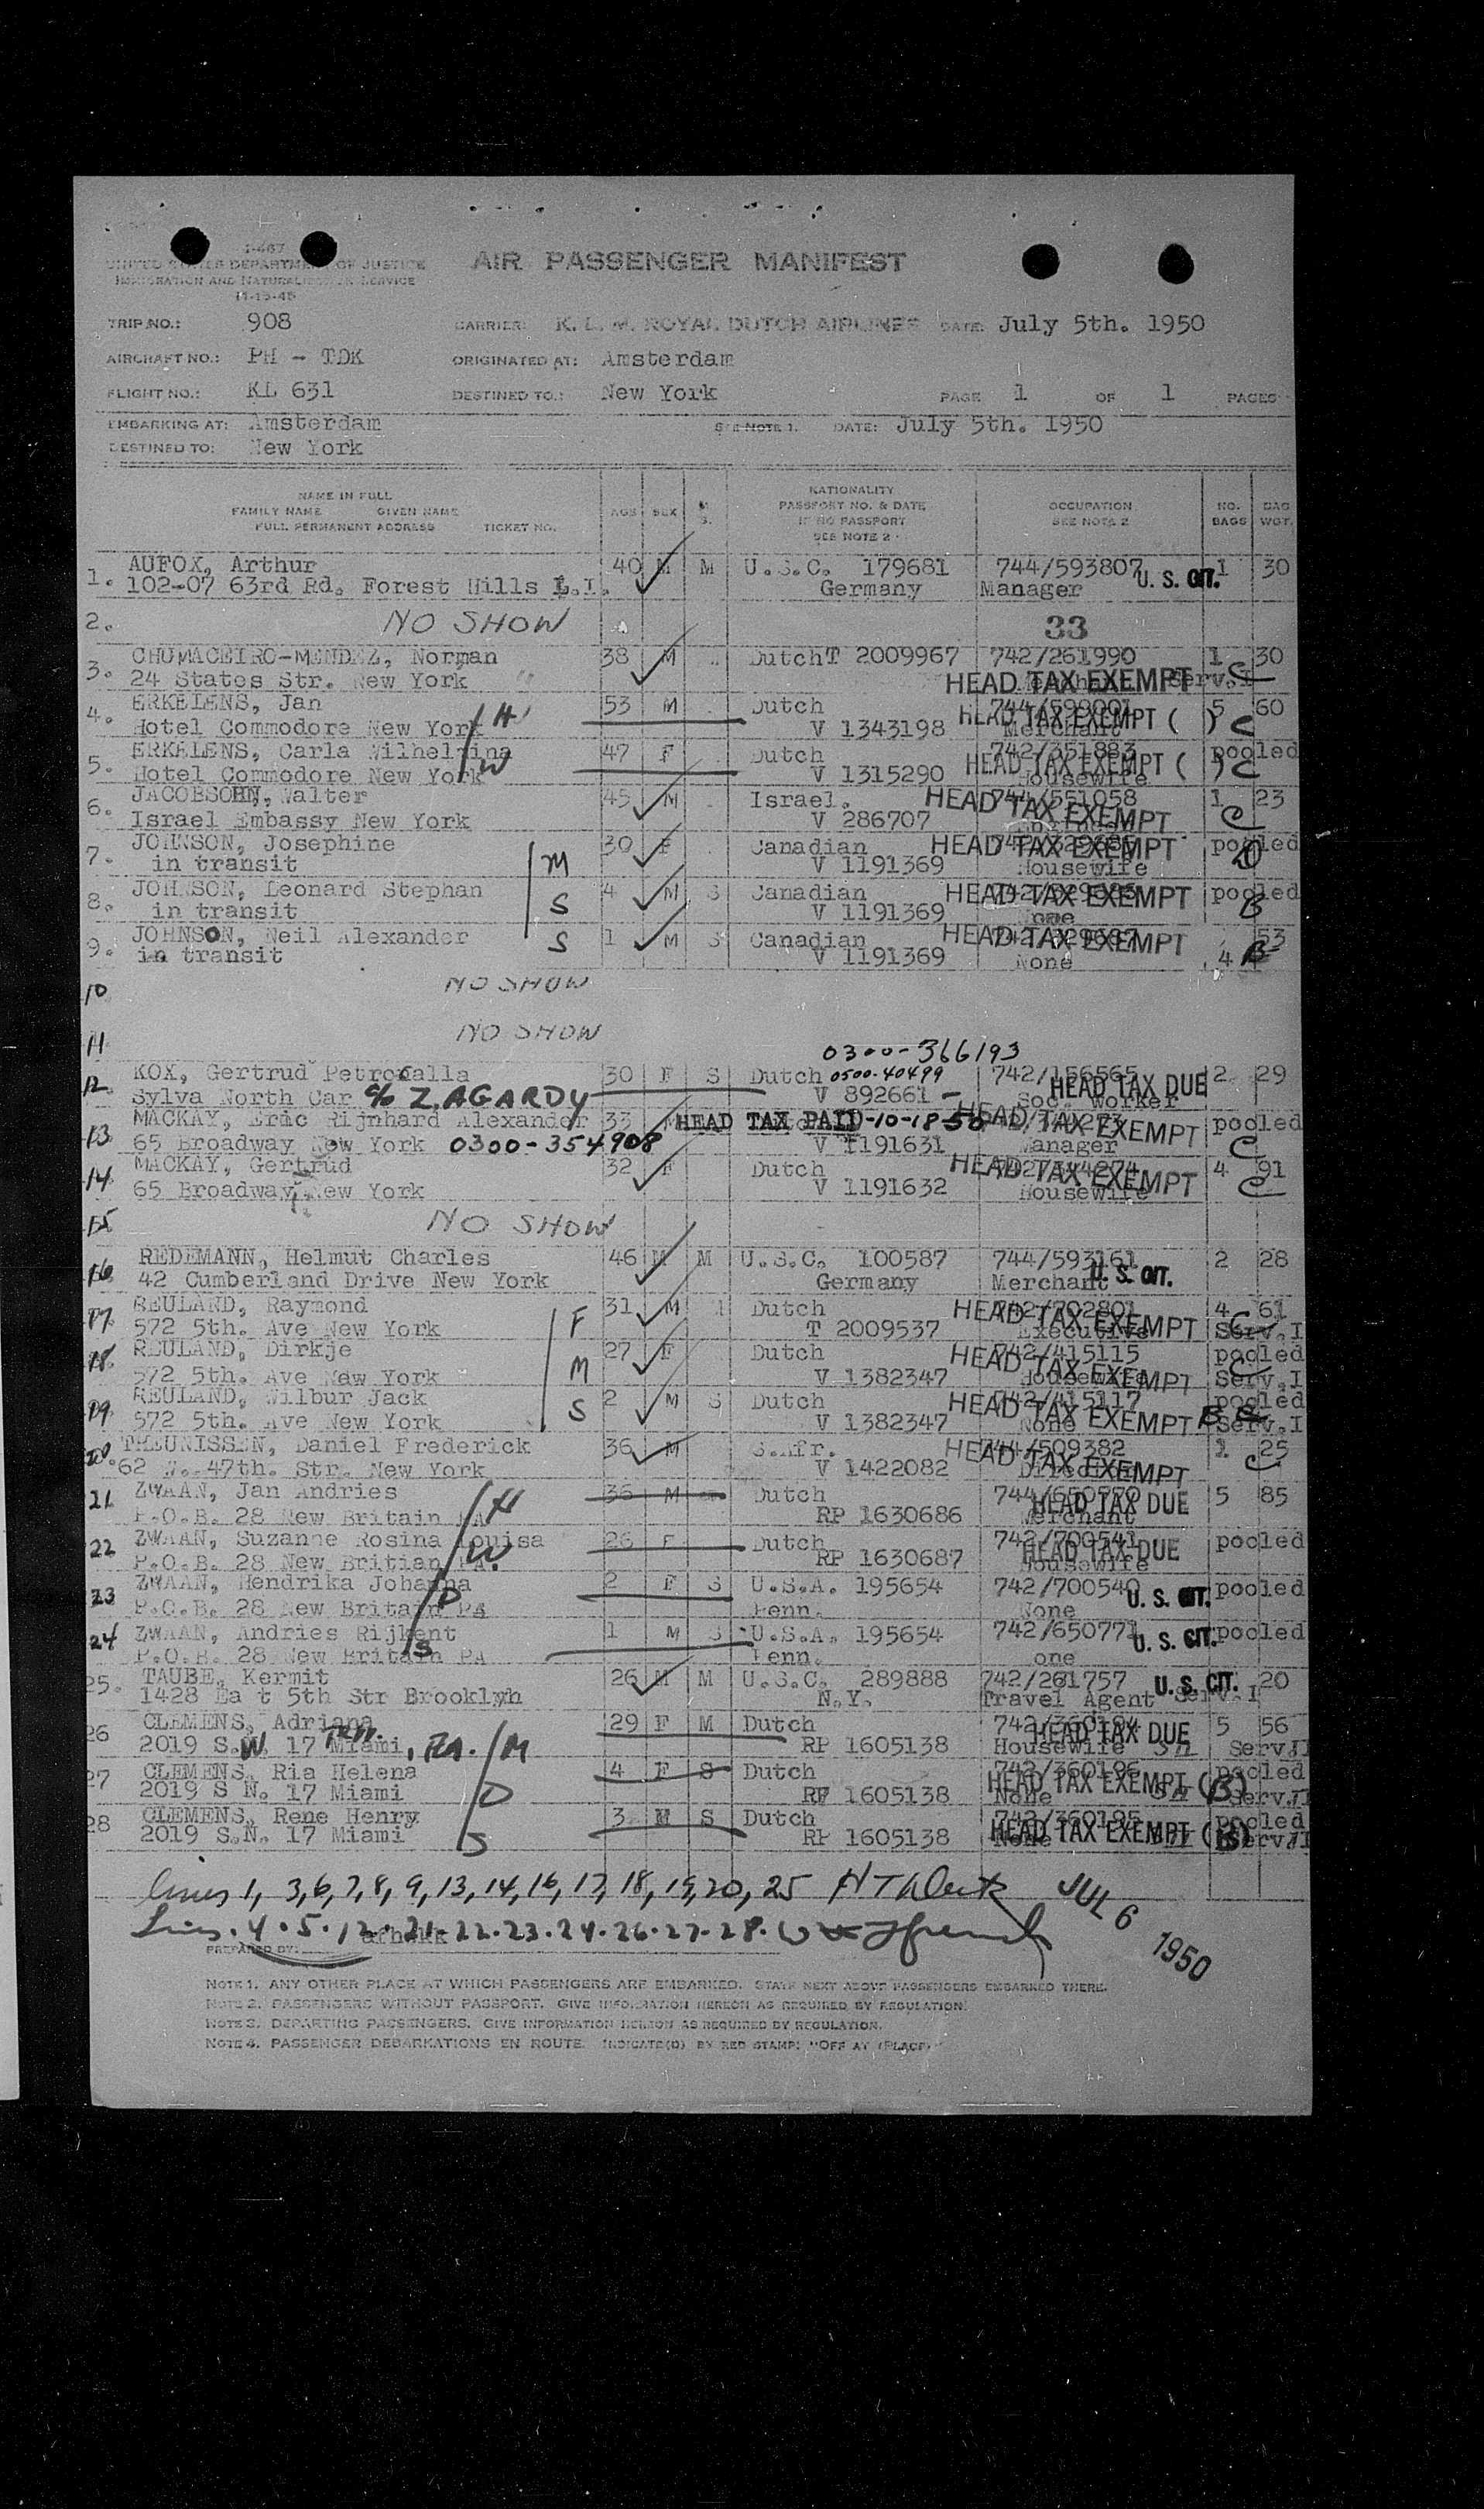 I-467
UNITED STATES DEPARTMENT OF JUSTICE
IMMIGRATION AND NATURALIZATION SERVICE
11-15-45
AIR PASSENGER MANIFEST
TRIP NO.: 908 CARRIER: K. L. M. ROYAL DUTCH AIRLINES DATE: July 5th. 1950
AIRCRAFT NO.: PH - TDK ORIGINATED AT: Amsterdam
FLIGHT NO.: KL 631 DESTINED TO.: New York PAGE 1 OF 1 PAGES
EMBARKING AT: Amsterdam SEE NOTE 1. DATE: July 5th. 1950
DESTINED TO: New York
NAME IN FULL
FAMILY NAME GIVEN NAME
FULL PERMANENT ADDRESS TICKET NO.
AGE SEX M S.
NATIONALITY
PASSPORT NO. & DATE
IF NO PASSPORT
SEE NOTE 2
OCCUPATION
SEE NOTE 2
NO. BAGS
BAG WGT.
1. AUFOX, Arthur 40 M M U.S.C. 179681 744/593807 1 30
102-07 63rd Rd. Forest Hills L.I. Germany Manager U. S. CIT.
2. NO SHOW 33
3. CHUMACEIRO-MENDEZ, Norman 38 M Dutch T 2009967 742/261990 1 30
24 States Str. New York HEAD TAX EXEMPT Serv.I C
4. ERKELENS, Jan 53 M Dutch 5 60
Hotel Commodore New York H V 1343198 Merchant HEAD TAX EXEMPT ( ) C
5. ERKELENS, Carla Wilhelmina 47 F Dutch 742/351883 pooled
Hotel Commodore New York W V 1315290 Housewife HEAD TAX EXEMPT ( ) C
6. JACOBSOHN, Walter 45 M Israel. 744/551058 1 23
Israel Embassy New York V 286707 HEAD TAX EXEMPT C
7. JOHNSON, Josephine 30 F Canadian pooled
in transit M V 1191369 Housewife HEAD TAX EXEMPT
8. JOHNSON, Leonard Stephan 4 M S Canadian pooled
in transit S V 1191369 None HEAD TAX EXEMPT B
9. JOHNSON, Neil Alexander 1 M S Canadian 742/329687 53
in transit S V 1191369 None HEAD TAX EXEMPT 4 B
10 NO SHOW
11 NO SHOW
0300-366193
12 KOX, Gertrud Petronalla 30 F S Dutch 0500-40499 742/156565 2 29
Sylva North Car c/o Z. AGARDY V 892661 Soc. Worker HEAD TAX DUE
13 MACKAY, Eric Rijnhard Alexander 33 M HEAD TAX PAID-10-18-50 HEAD TAX EXEMPT pooled
65 Broadway New York 0300-354908 V 1191631 Manager C
14 MACKAY, Gertrud 32 F Dutch HEAD TAX EXEMPT 4 91
65 Broadway New York V 1191632 Housewife C
15 NO SHOW
16 REDEMANN, Helmut Charles 46 M M U.S.C. 100587 744/593161 2 28
42 Cumberland Drive New York Germany Merchant U. S. CIT.
17. REULAND, Raymond 31 M Dutch 742/702801 4 61
572 5th. Ave New York F T 2009537 Executive HEAD TAX EXEMPT C Serv.I
18. REULAND, Dirkje 27 F Dutch 742/415115 pooled
572 5th. Ave New York M V 1382347 Housewife HEAD TAX EXEMPT C Serv.I
19 REULAND, Wilbur Jack 2 M S Dutch 742/415117 pooled
572 5th. Ave New York S V 1382347 None HEAD TAX EXEMPT B Serv.I
20 THEUNISSEN, Daniel Frederick 36 M S.Afr. 744/509382 1 25
62 W. 47th. Str. New York V 1422082 HEAD TAX EXEMPT C
21 ZWAAN, Jan Andries 36 M Dutch 744/650770 5 85
P.O.B. 28 New Britain PA H RP 1630686 Merchant HEAD TAX DUE
22 ZWAAN, Suzanne Rosina Louisa 26 F Dutch 742/700541 pooled
P.O.B. 28 New Britian PA. W RP 1630687 Housewife HEAD TAX DUE
23 ZWAAN, Hendrika Johanna 2 F S U.S.A. 195654 742/700540 pooled
P.O.B. 28 New Britain PA D Penn. None U. S. CIT.
24 ZWAAN, Andries Rijkent 1 M S U.S.A. 195654 742/650771 pooled
P.O.B. 28 New Britain PA S Penn. one U. S. CIT.
25. TAUBE, Kermit 26 M M U.S.C. 289888 742/261757 20
1428 Ea t 5th Str Brooklyn N.Y. Travel Agent U. S. CIT. Serv.I
26 CLEMENS, Adriana 29 F M Dutch 742/360194 5 56
2019 S.W. 17 Miami, M RP 1605138 Housewife HEAD TAX DUE Serv.II
27 CLEMENS, Ria Helena 4 F S Dutch 742/360196 pooled
2019 S N. 17 Miami D RP 1605138 None HEAD TAX EXEMPT (B) Serv.II
28 CLEMENS, Rene Henry 3 M S Dutch 742/360195 pooled
2019 S.N. 17 Miami S RP 1605138 None HEAD TAX EXEMPT (B) Serv.II
Lines 1, 3, 6, 7, 8, 9, 13, 14, 16, 17, 18, 19, 20, 25
Lines. 4. 5. 12. 21. 22. 23. 24. 26. 27. 28.
JUL 6 1950
PREPARED BY:
NOTE 1. ANY OTHER PLACE AT WHICH PASSENGERS ARE EMBARKED. STATE NEXT ABOVE PASSENGERS EMBARKED THERE.
NOTE 2. PASSENGERS WITHOUT PASSPORT. GIVE INFORMATION HEREON AS REQUIRED BY REGULATION.
NOTE 3. DEPARTING PASSENGERS. GIVE INFORMATION HEREON AS REQUIRED BY REGULATION.
NOTE 4. PASSENGER DEBARKATIONS EN ROUTE. INDICATE(D) BY RED STAMP: "OFF AT (PLACE)"